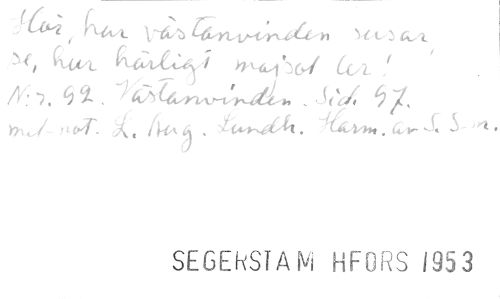 Hör, hur västanvinden susar,
se, hur härligt majsol ler!
N:r. 92. Västanvinden. Sid. 97.
mel. not. L. Aug. Lundh. Harm. av S. S-m.
SEGERSTAM HFORS 1953